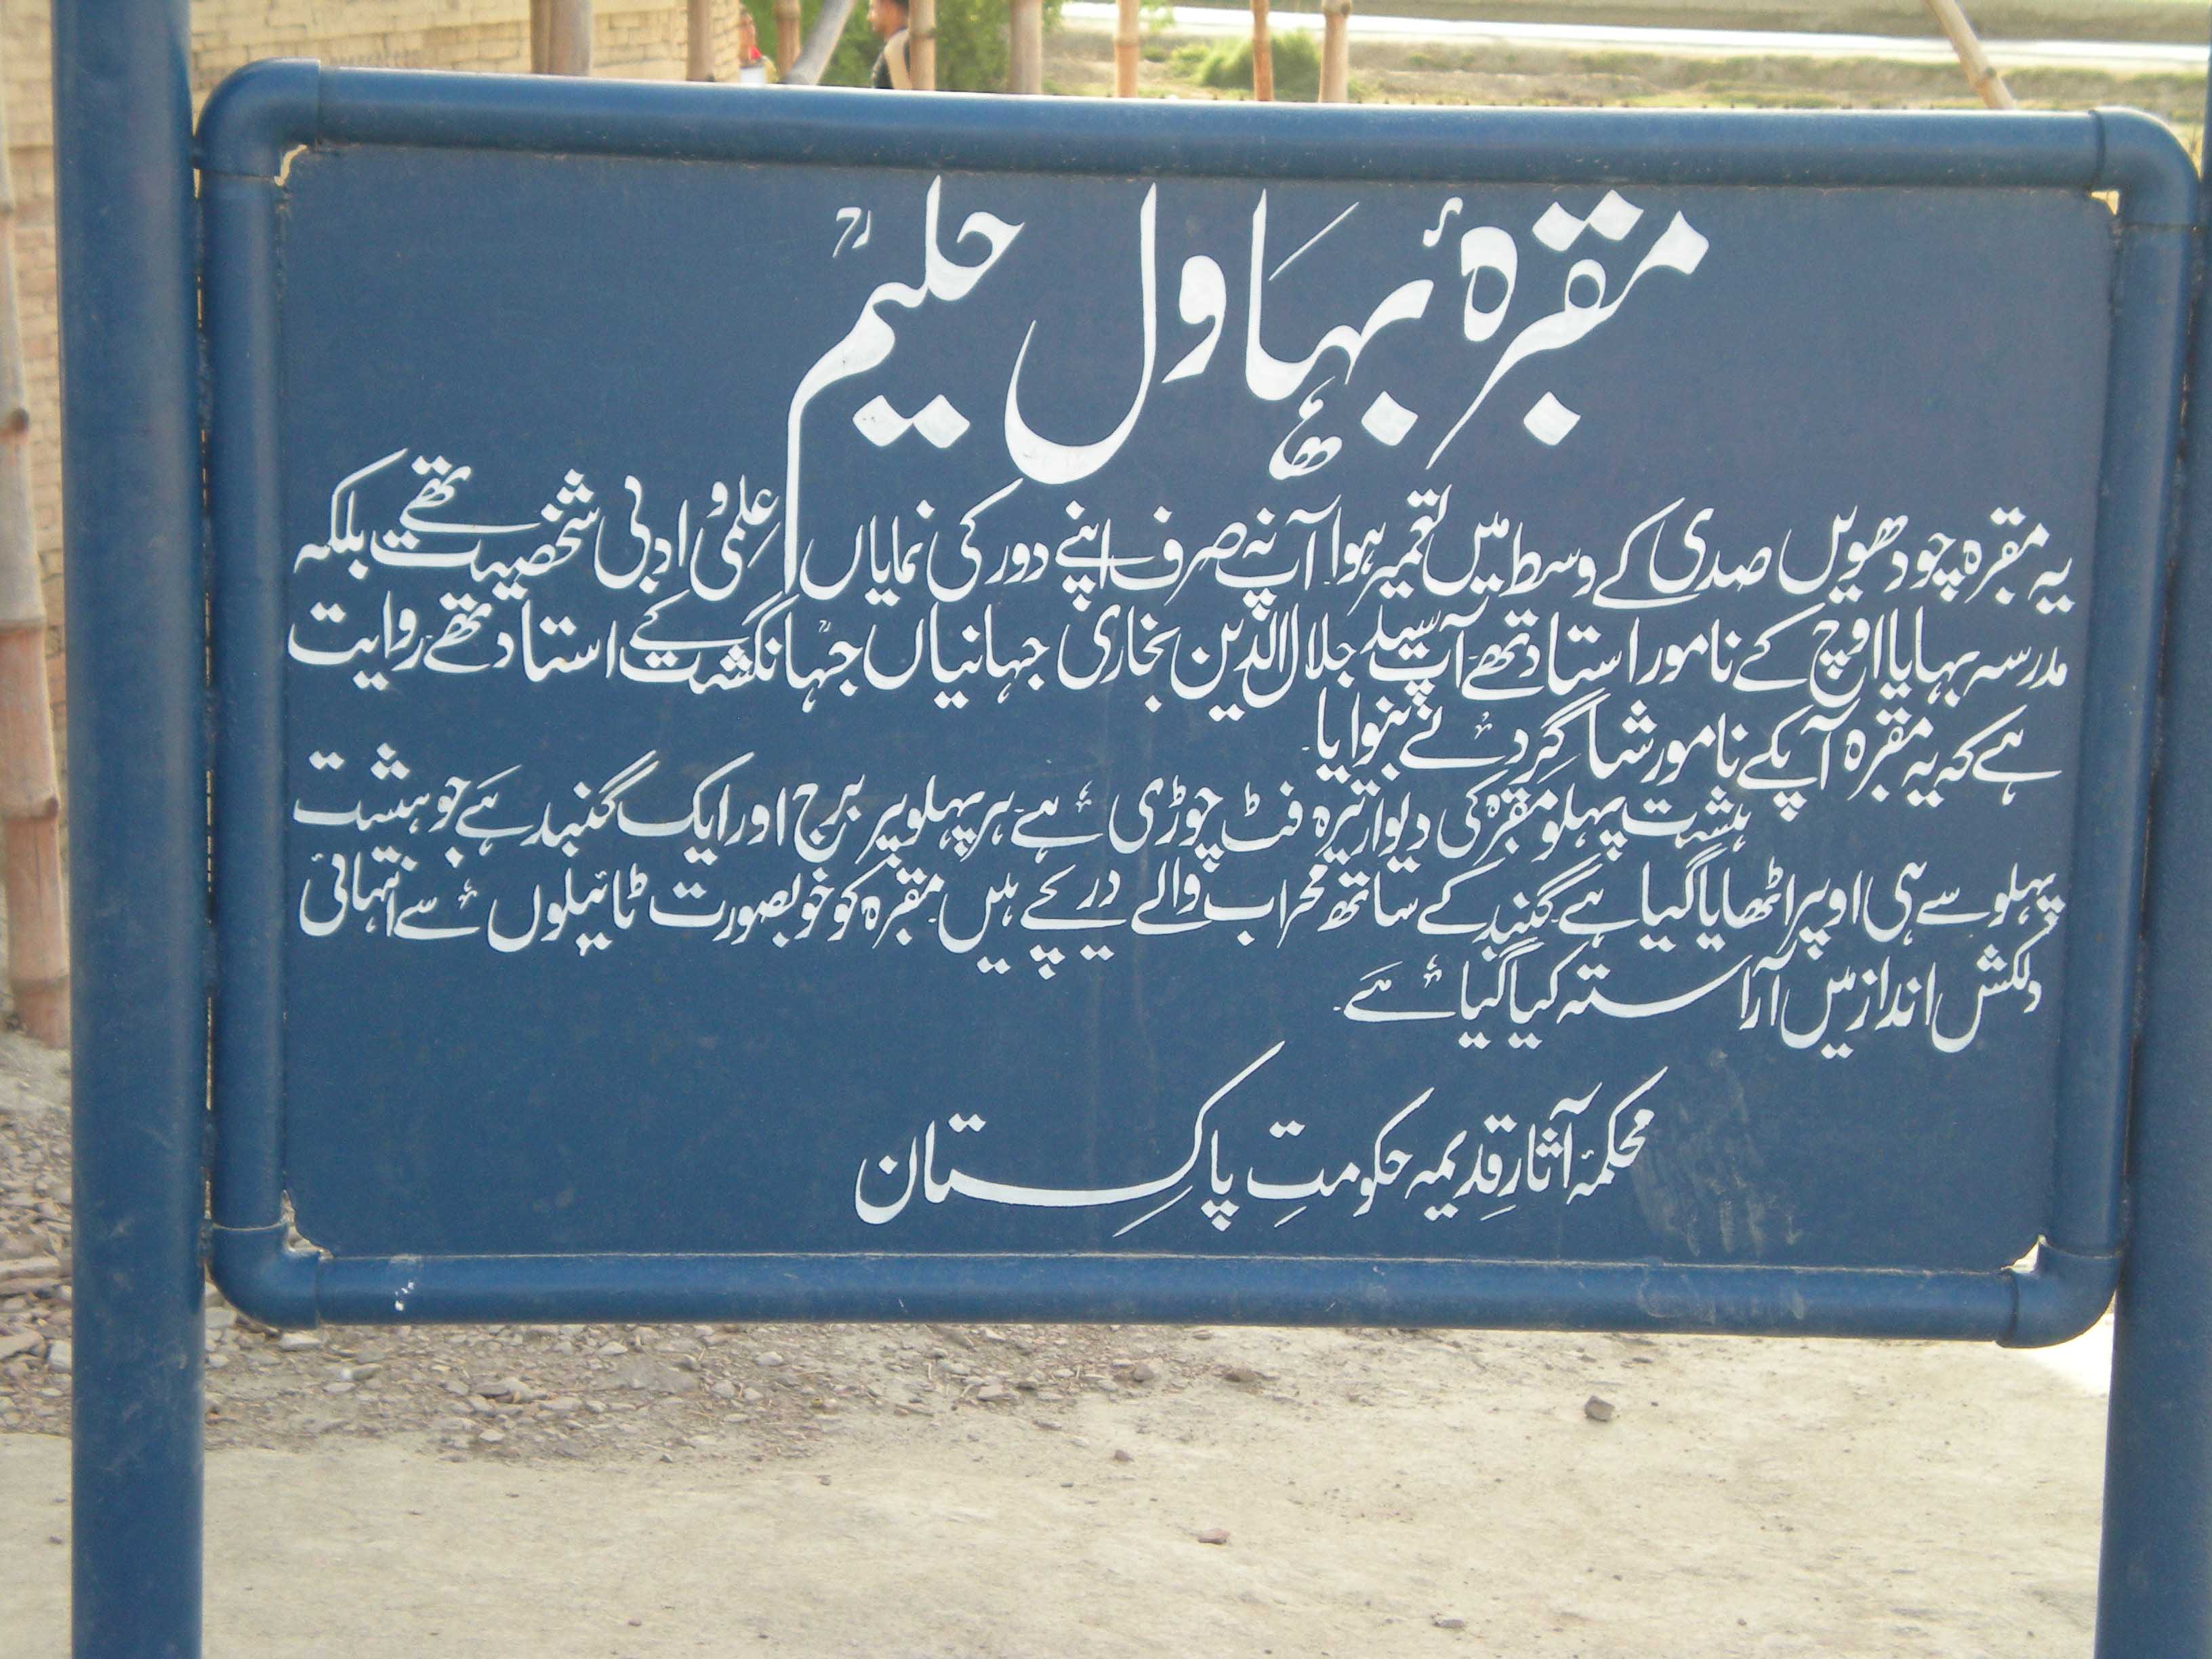 مقبرۂ بہاول حلیمؒ
یہ مقبرہ چودھویں صدی کے وسط میں تعمیر ہوا آپ نہ صرف اپنے دور کی نمایاں علمی و ادبی شخصیت تھے بلکہ
مدرسہ بہایا اوچ کے نامور استاد تھے۔ آپ سید جلال الدین بخاری جہانیاں جہانگشتؒ کے استاد تھے۔ روایت
ہے کہ یہ مقبرہ آپکے نامور شاگرد نے بنوایا۔
ہشت پہلو مقبرہ کی دیوار تیرہ فٹ چوڑی ہے۔ ہر پہلو پر برج اور ایک گنبد ہے جو ہشت
پہلو سے ہی اوپر اٹھایا گیا ہے۔ گنبد کے ساتھ محراب والے دریچے ہیں۔ مقبرہ کو خوبصورت ٹائیلوں سے انتہائی
دلکش انداز میں آراستہ کیا گیا ہے۔
محکمۂ آثارِ قدیمہ حکومتِ پاکستان